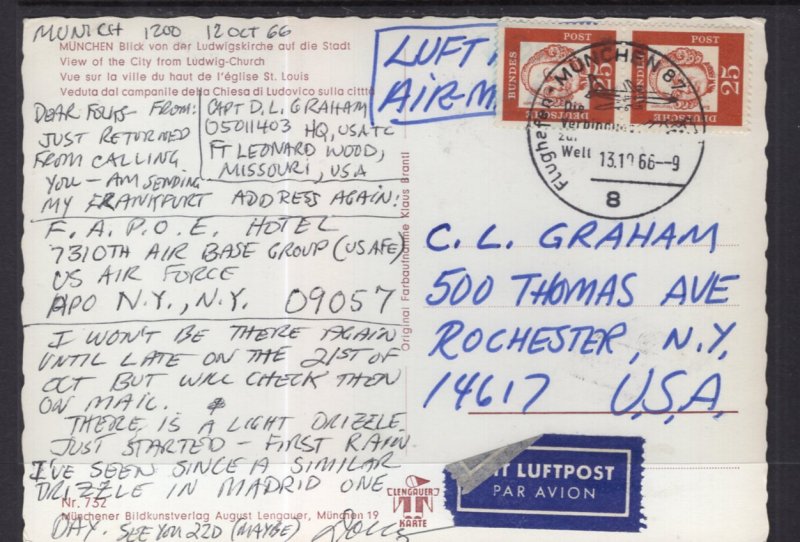 MUNICH 1200 12 OCT 66
MÜNCHEN Blick von der Ludwigskirche auf die Stadt
View of the City from Ludwig-Church
Vue sur la ville du haut de l'église St. Louis
Veduta dal campanile della Chiesa di Ludovico sulla città
DEAR FOLKS- FROM:
CAPT D. L. GRAHAM
05011403 HQ, USATC
FT LEONARD WOOD,
MISSOURI, USA
JUST RETURNED
FROM CALLING
YOU - AM SENDING
MY FRANKFURT ADDRESS AGAIN:
F. A. P. O. E. HOTEL
7310TH AIR BASE GROUP (USAFE)
US AIR FORCE
APO N.Y., N.Y. 09057
I WON'T BE THERE AGAIN
UNTIL LATE ON THE 21ST OF
OCT BUT WILL CHECK THEN
ON MAIL.
THERE IS A LIGHT DRIZZLE
JUST STARTED - FIRST RAIN
I'VE SEEN SINCE A SIMILAR
DRIZZLE IN MADRID ONE
Nr. 732
Münchener Bildkunstverlag August Lengauer, München 19
DAY. SEE YOU 22D (MAYBE) Doug
LENGAUER
KARTE
Original Farbaufnahme Klaus Brantl
LUFT
AIR-M
BUNDES POST
25
DEUTSCHE
BUNDES POST
25
DEUTSCHE
Flughafen MÜNCHEN 87
Die
Verbindung
zur
Welt
13.10.66--9
8
C. L. GRAHAM
500 THOMAS AVE
ROCHESTER, N.Y.
14617 U.S.A.
IT LUFTPOST
PAR AVION